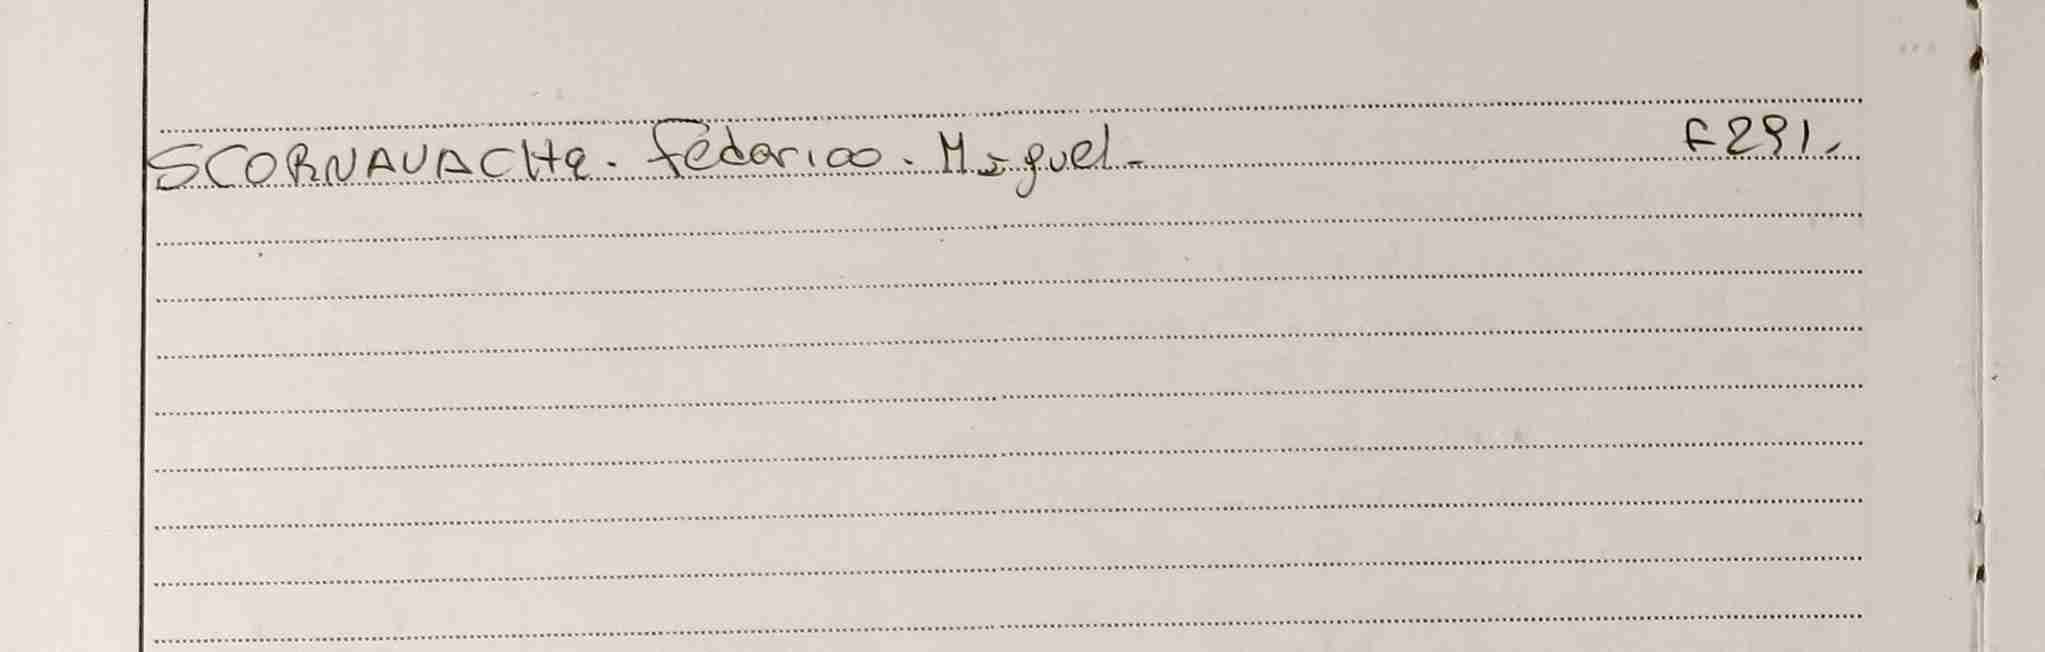 SCORNAVACHE. Federico. Miguel- F 291.